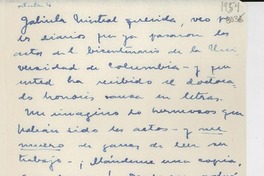 octubre 4
1954
Gabriela Mistral querida, veo
los diarios que ya pasaron los
actos del bicentenario de la Uni
versidad de Columbia - y que
usted ha recibido el doctora-
do honoris causa en letras.
Me imagino lo hermosos que
habían sido los actos - y me
muero de ganas de leer su
trabajo - ¡Mándeme una copia,